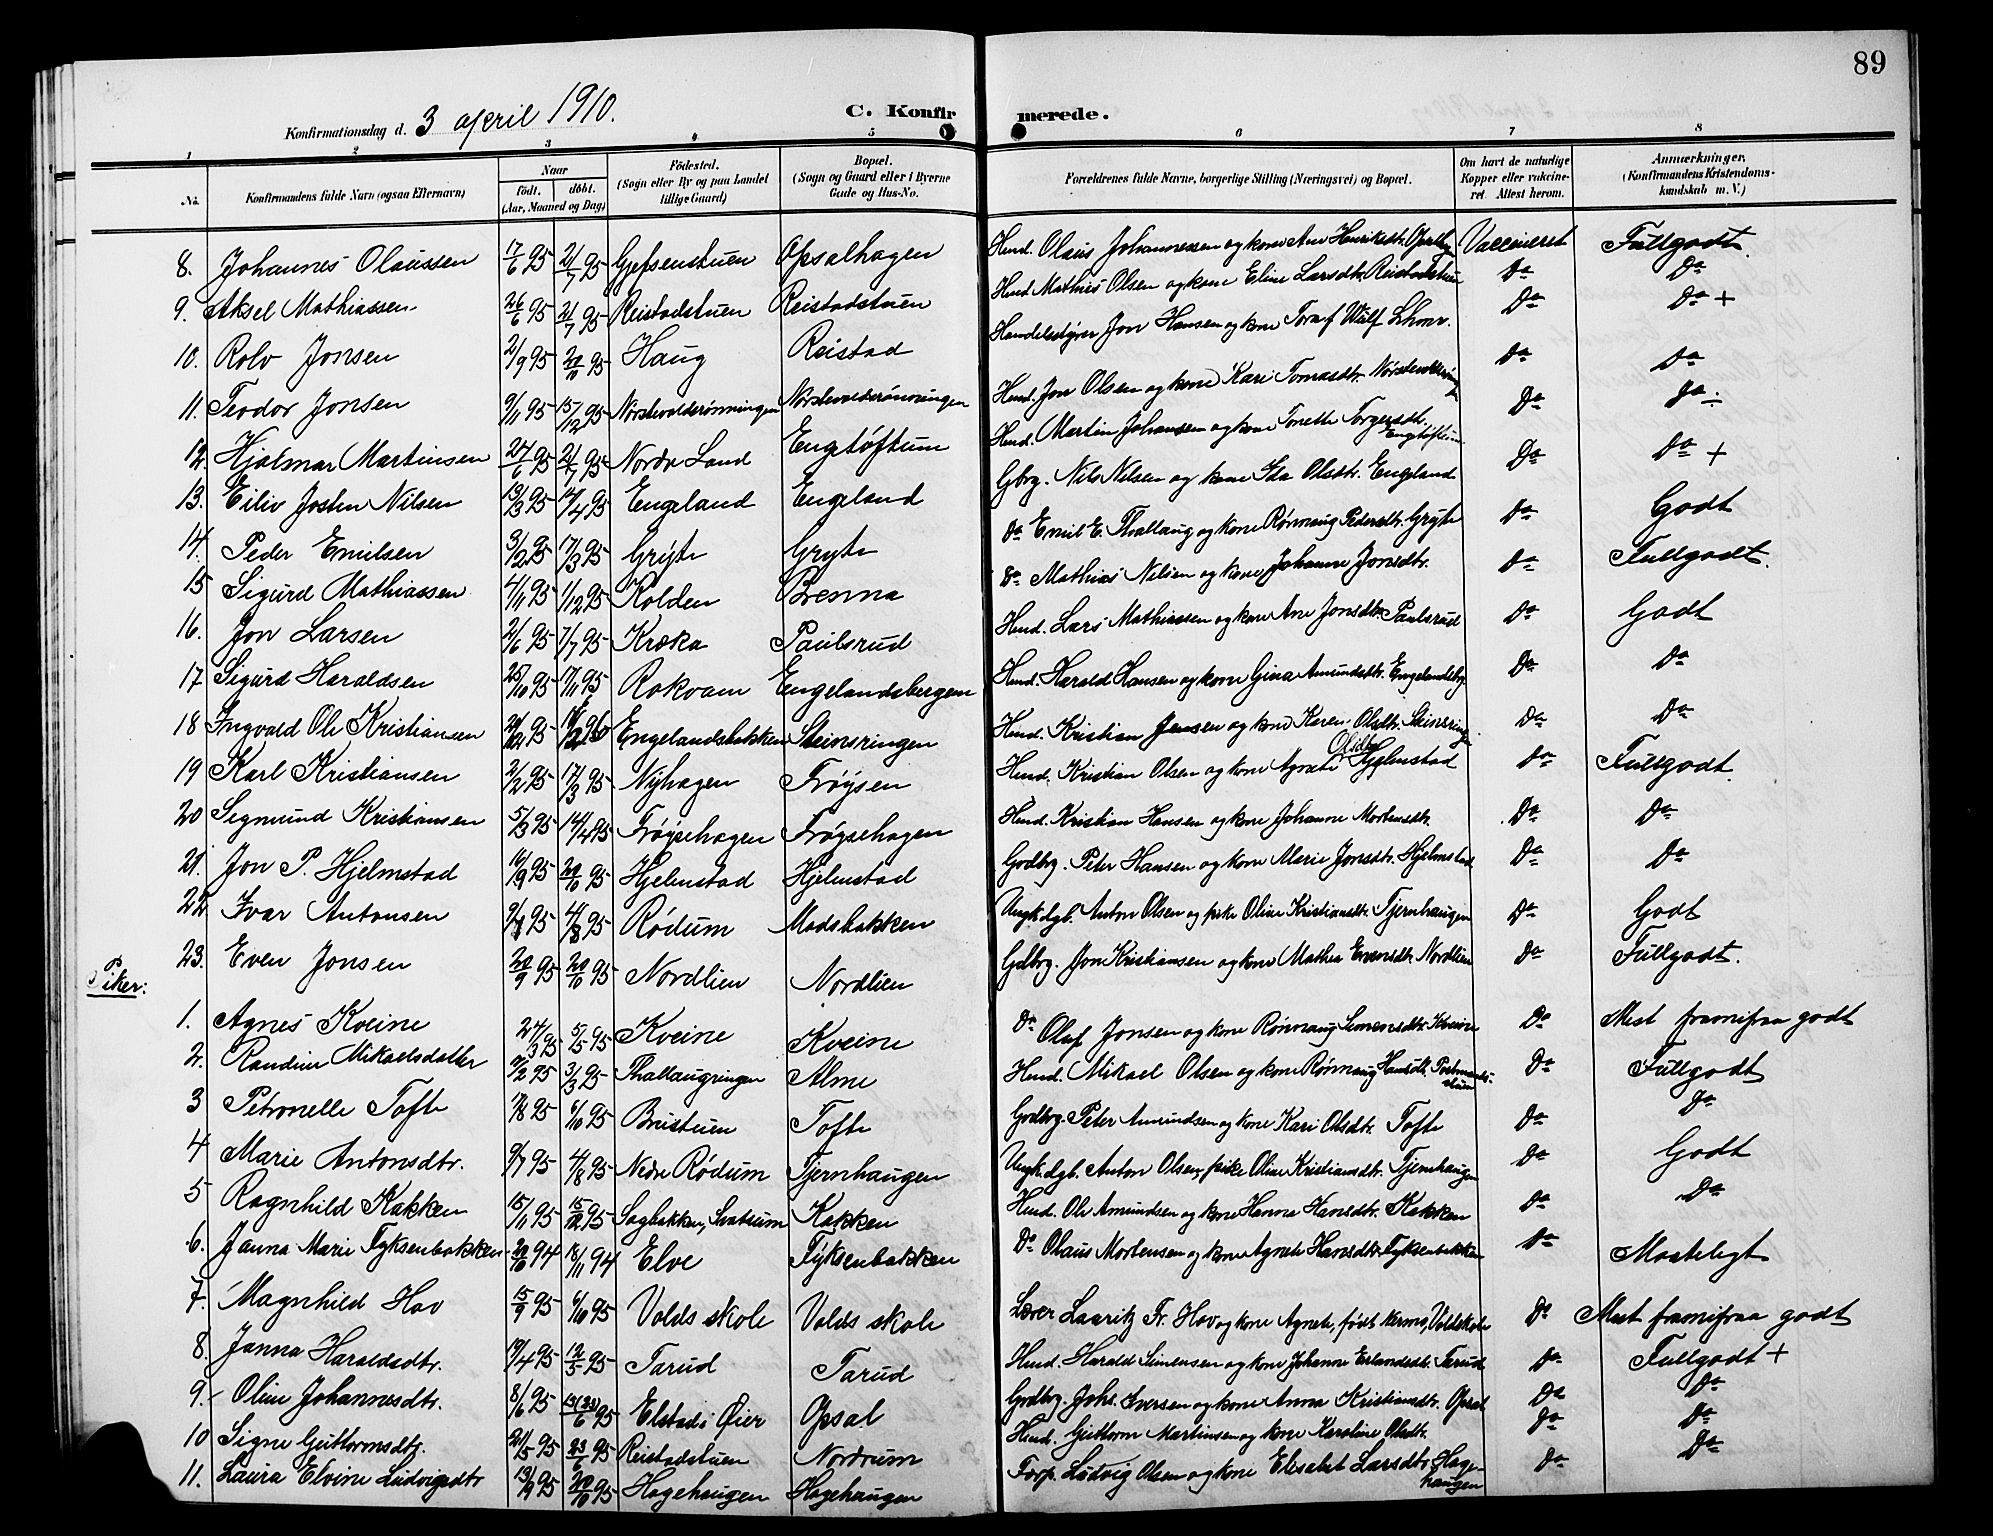 89
Konfirmationsdag d. 3 april 1910. C. Konfirmerede.
1 2 3 4 5 6 7 8
No. Konfirmandens fulde Navn (ogsaa Efternavn) Naar født. døbt. (Aar, Maaned og Dag) Fødested. (Sogn eller By og paa Landet tillige Gaard) Bopæl. (Sogn og Gaard eller i Byerne Gade og Hus-No. Forældrenes fulde Navne, borgerlige Stilling (Næringsvei) og Bopæl. Om havt de naturlige Kopper eller vaccineret. Attest herom. Anmærkninger. (Konfirmandens Kristendomskundskab m. V.)
8. Johannes Olaussen 17/6 95 21/7 95 Gjefsenstuen Opsalhagen Husd. Olaus Johannessen og kone Ane Henriksdtr. Vaccineret Fuldgodt.
9. Aksel Mathiassen 26/6 95 21/7 95 Reistadstuen Reistadstuen Husd. Mathias Olsen og kone Eline Larsdtr. Reistadstuen Do Do
10. Rolv Jonsen 2/9 95 20/10 95 Haug Reistad Handelsstyrer Jon Hansen og kone Tora f. Wulf Do Do +
11. Teodor Jonsen 9/11 95 15/12 95 Norstevolderønningen Norstevolderønningen Husd. Jon Olsen og kone Kari Tomasdtr. Do Do
12. Hjalmar Martinsen 24/6 95 21/7 95 Nordre Land Engtøftum Husd. Martin Johansen og kone Tonette Torgersdt. Engtøftum Do Do
13. Eiliv Josten Nilsen 13/3 95 14/4 95 Engeland Engeland Gbrg. Nils Nilsen og kone Ida Olsdtr. Engeland Do Do +
14. Peder Emilsen 3/2 95 17/3 95 Gryte Gryte Do Emil E. Thallaug og kone Rønnaug Pedersdtr. Gryte Do Godt
15 Sigurd Mathiassen 4/11 95 1/12 95 Kolden Brenna Do Mathias Nilsen og kone Johanne Jonsdtr. Do Fuldgodt.
16. Jon Larsen 2/6 95 7/7 95 Kræka Paulsrud Husd. Lars Mathiassen og kone Ane Jonsdtr. Paulsrud Do Godt
17 Sigurd Haraldsen 25/10 95 17/11 95 Rokvam Engelandsbergen Husd. Harald Hansen og kone Gina Amundsdtr. Do Do
18 Ingvald Ole Kristiansen Engelandsbakken Steinsringen Husd. Kristian Jensen og kone Karen Olsdtr. Steinsringen Do Do
19 Karl Kristiansen 2/2 95 17/3 95 Nyhagen Frøysen Husd. Kristian Olsen og kone Agnete Olsdtr. Hjelmstad Do Fuldgodt.
20 Segmund Kristiansen 5/3 95 14/4 95 Frøysehagen Frøysehagen Husd. Kristian Hansen og kone Johanne Mortensdtr. Do Do
21. Jon P. Hjelmstad 16/9 95 20/10 95 Hjelmstad Hjelmstad Gødbrg. Peter Hansen og kone Marie Jonsdtr. Hjelmstad Do Do
22 Ivar Antonsen 9/7 95 4/8 95 Rødum Modsbakken Ungk. dgb. Anton Olsen og pike Oline Kristiansdtr. Tjernhaugen Do Godt
23. Even Jonsen 20/9 95 20/10 95 Nordlien Nordlien Gdbrg. Jon Kristiansen og kone Mathea Evensdtr. Nordlien Do Fuldgodt.
Piker:
1. Agnes Kveine 24/3 95 5/5 95 Kveine Kveine Do Olaf Jonsen og kone Rønnaug Simensdtr. Kveine Do Mest framifraa godt
2. Randine Mikaelsdatter 9/2 95 3/3 95 Thallaugringen Alme Husd. Mikael Olsen og kone Rønnaug Hansdt. Do Fuldgodt
3 Petronelle Tofte 7/8 95 6/10 95 Bristuen Tofte Gødbrg. Peter Amundsen og kone Kari Olsdtr. Tofte Do Do
4 Marie Antonsdtr. 9/7 95 4/8 95 Nedre Rødum Tjernhaugen Ungk. dgb. Anton Olsen, pike Oline Kristiansdtr. Tjernhaugen Do Godt
5 Ragnhild Kakken 15/11 95 15/12 95 Sagbakken, Svatsum Kakken Husd. Ole Amundsen og kone Hanna Hansdtr. Kakken Do Do
6. Janna Marie Fyksenbakken 20/10 94 18/11 94 Elve Fyksenbakken Do Olaus Mortensen og kone Agnete Hansdtr. Fyksenbakken Do Maateligt
7. Magnhild Hov 15/9 95 6/10 95 Volds skole Volds skole Lærer Lauritz Fr. Hov og kone Agnete, født Voldskole Do Mest framifraa godt
8. Janna Haraldsdtr. 19/4 95 12/5 95 Tarud Tarud Husd. Harald Simensen og kone Johanne Erlandsdt. Tarud Do Fuldgodt +
9. Oline Johannesdtr. 8/6 95 Elstad i Øier Opsal Gødbrg. Johs. Iversen og kone Anna Kristiansdtr. Opsal Do Do
10 Signe Guttormsdtr. 21/5 95 23/6 95 Reistadstuen Nordrum Husd. Guttorm Martinsen og kone Karoline Olsdtr. Do Do
11. Laura Elvine Ludvigsdtr 13/9 95 20/10 95 Hagehaugen Hagehaugen Forp. Ludvig Olsen og kone Elisabet Larsdtr. Hagehaugen Do Do